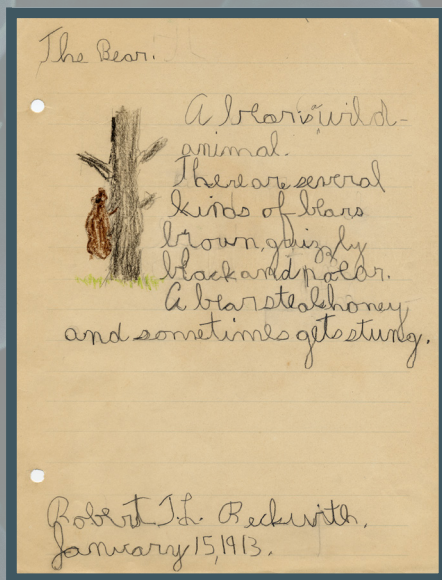 The Bear.
A bear is a wild-
animal.
There are several
kinds of bears
brown, grizzly
black and polar.
A bear steals honey
and sometimes gets stung.
Robert T.L. Beckwith.
January 15, 1913.